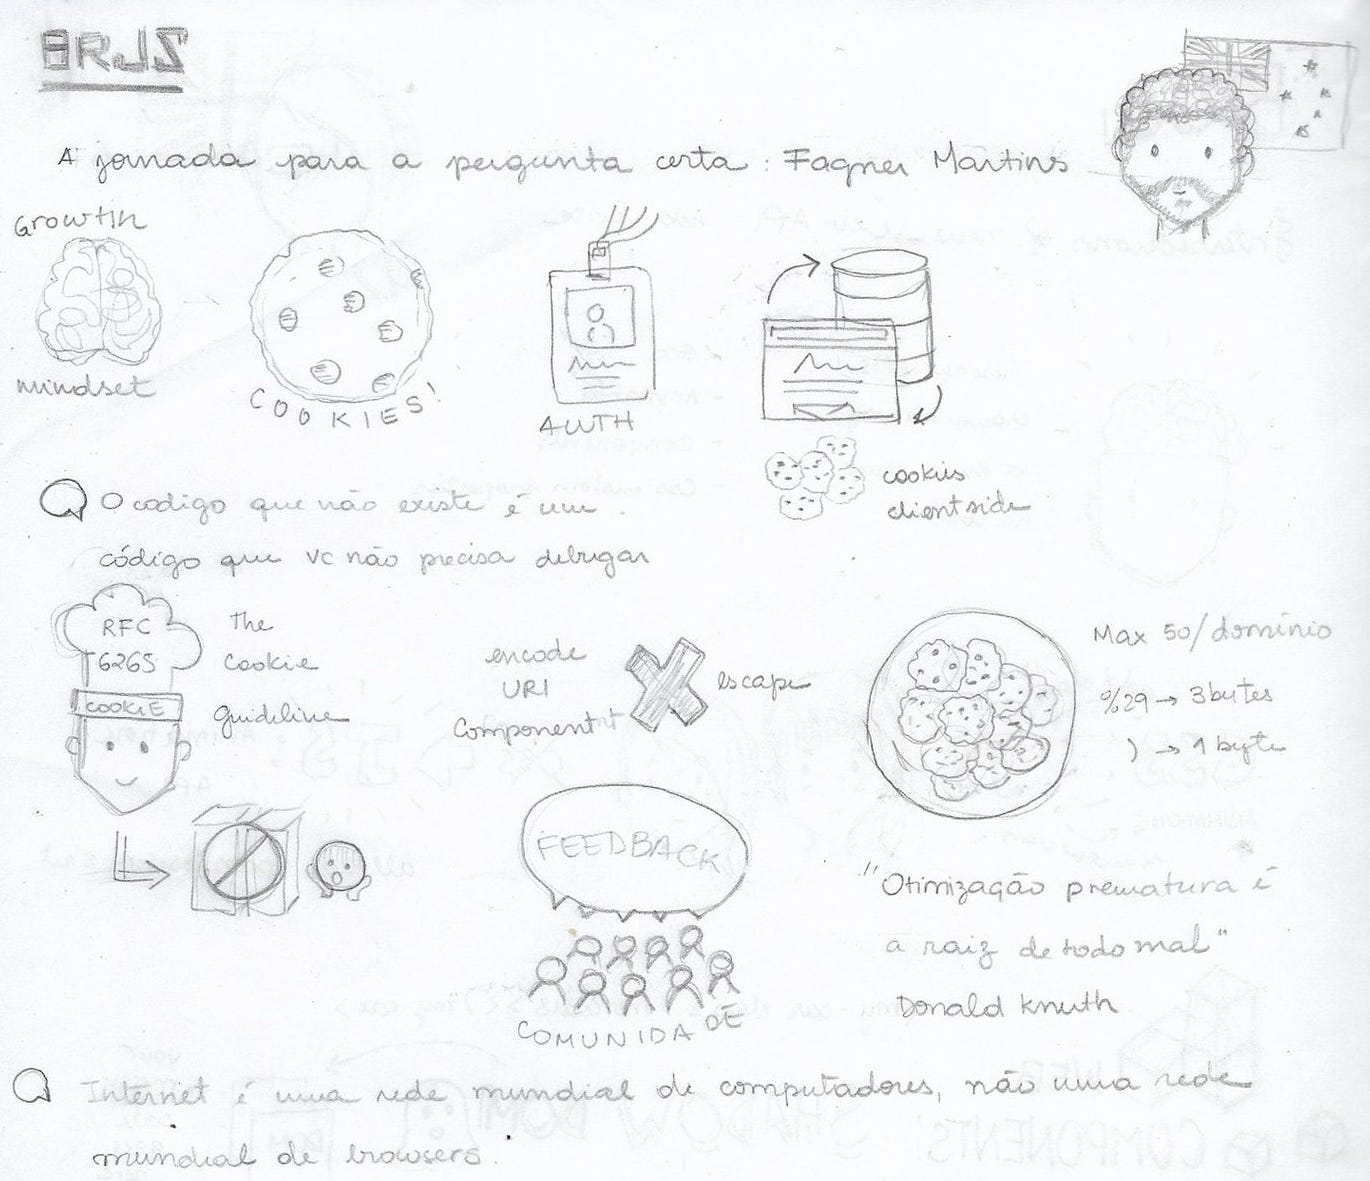 BRJS
A jornada para a pergunta certa : Fagner Martins
Growth
mindset
COOKIES!
AUTH
cookies
client side
O codigo que não existe é um
código que vc não precisa debugar
RFC
6265
COOKIE
The
Cookie
guideline
encode
URI
Component
escape
Max 50/domínio
%29 → 3 bytes
) → 1 byte
FEEDBACK
COMUNIDADE
"Otimização prematura é
a raiz de todo mal"
Donald Knuth
Internet é uma rede mundial de computadores, não uma rede
mundial de browsers.